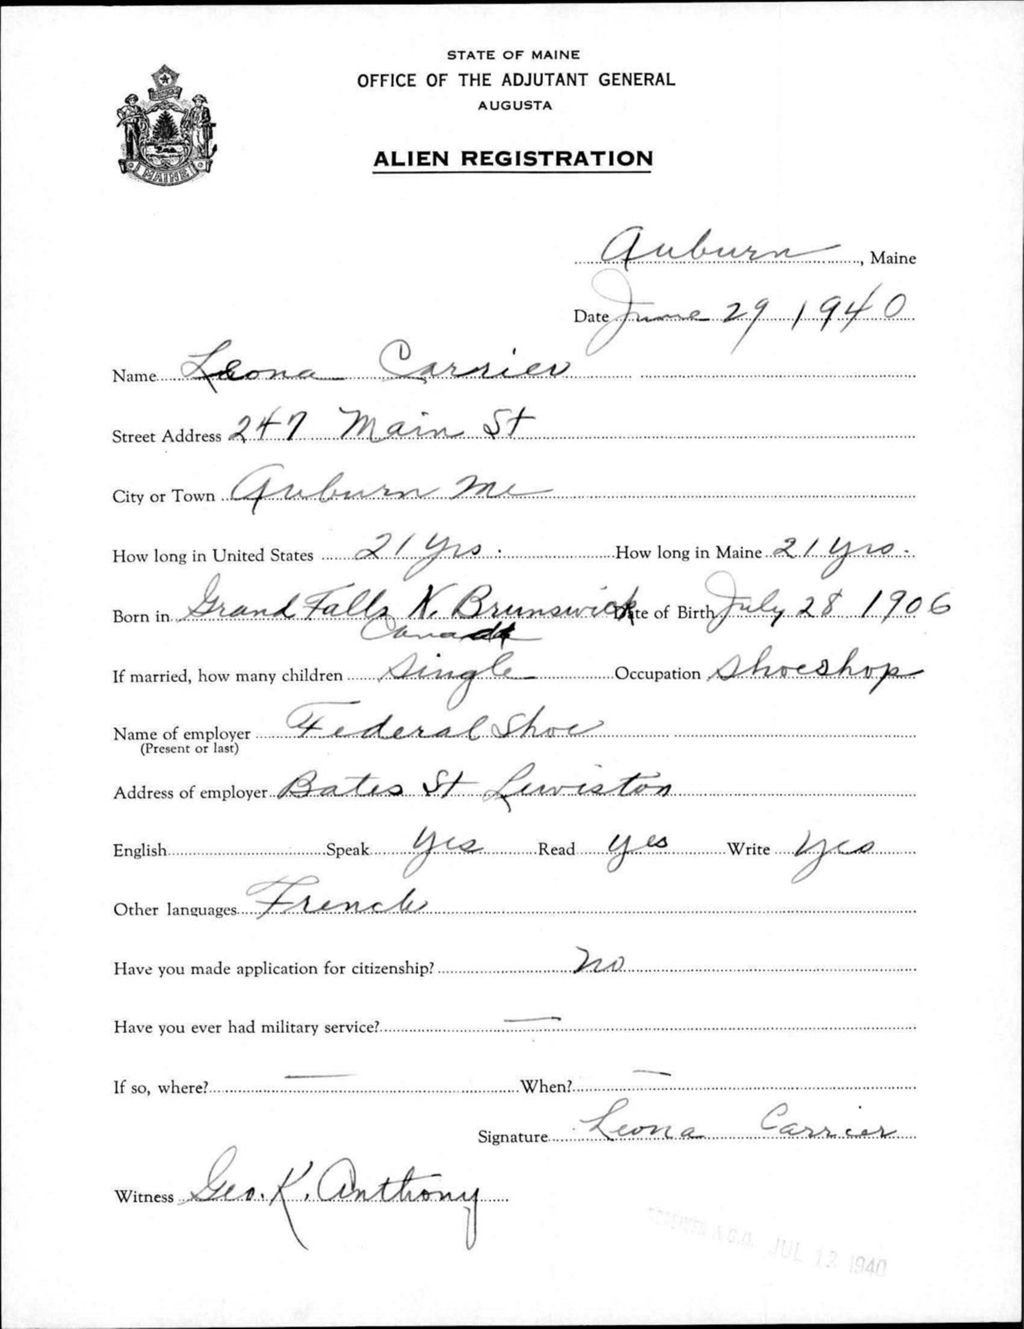 STATE OF MAINE
OFFICE OF THE ADJUTANT GENERAL
AUGUSTA
ALIEN REGISTRATION
MAINE
Auburn, Maine
Date June 29 1940
Name Leona Carrier
Street Address 247 Main St
City or Town Auburn Me
How long in United States 21 yrs. How long in Maine 21 yrs.
Born in Grand Falls N. Brunswick Date of Birth July 28 1906
Canada
If married, how many children Single Occupation Shoeshop
Name of employer Federal Shoe
(Present or last)
Address of employer Bates St Lewiston
English Speak yes Read yes Write yes
Other languages French
Have you made application for citizenship? no
Have you ever had military service? —
If so, where? — When? —
Signature Leona Carrier
Witness Geo. K. Anthony
RECEIVED A.G.O. JUL 12 1940